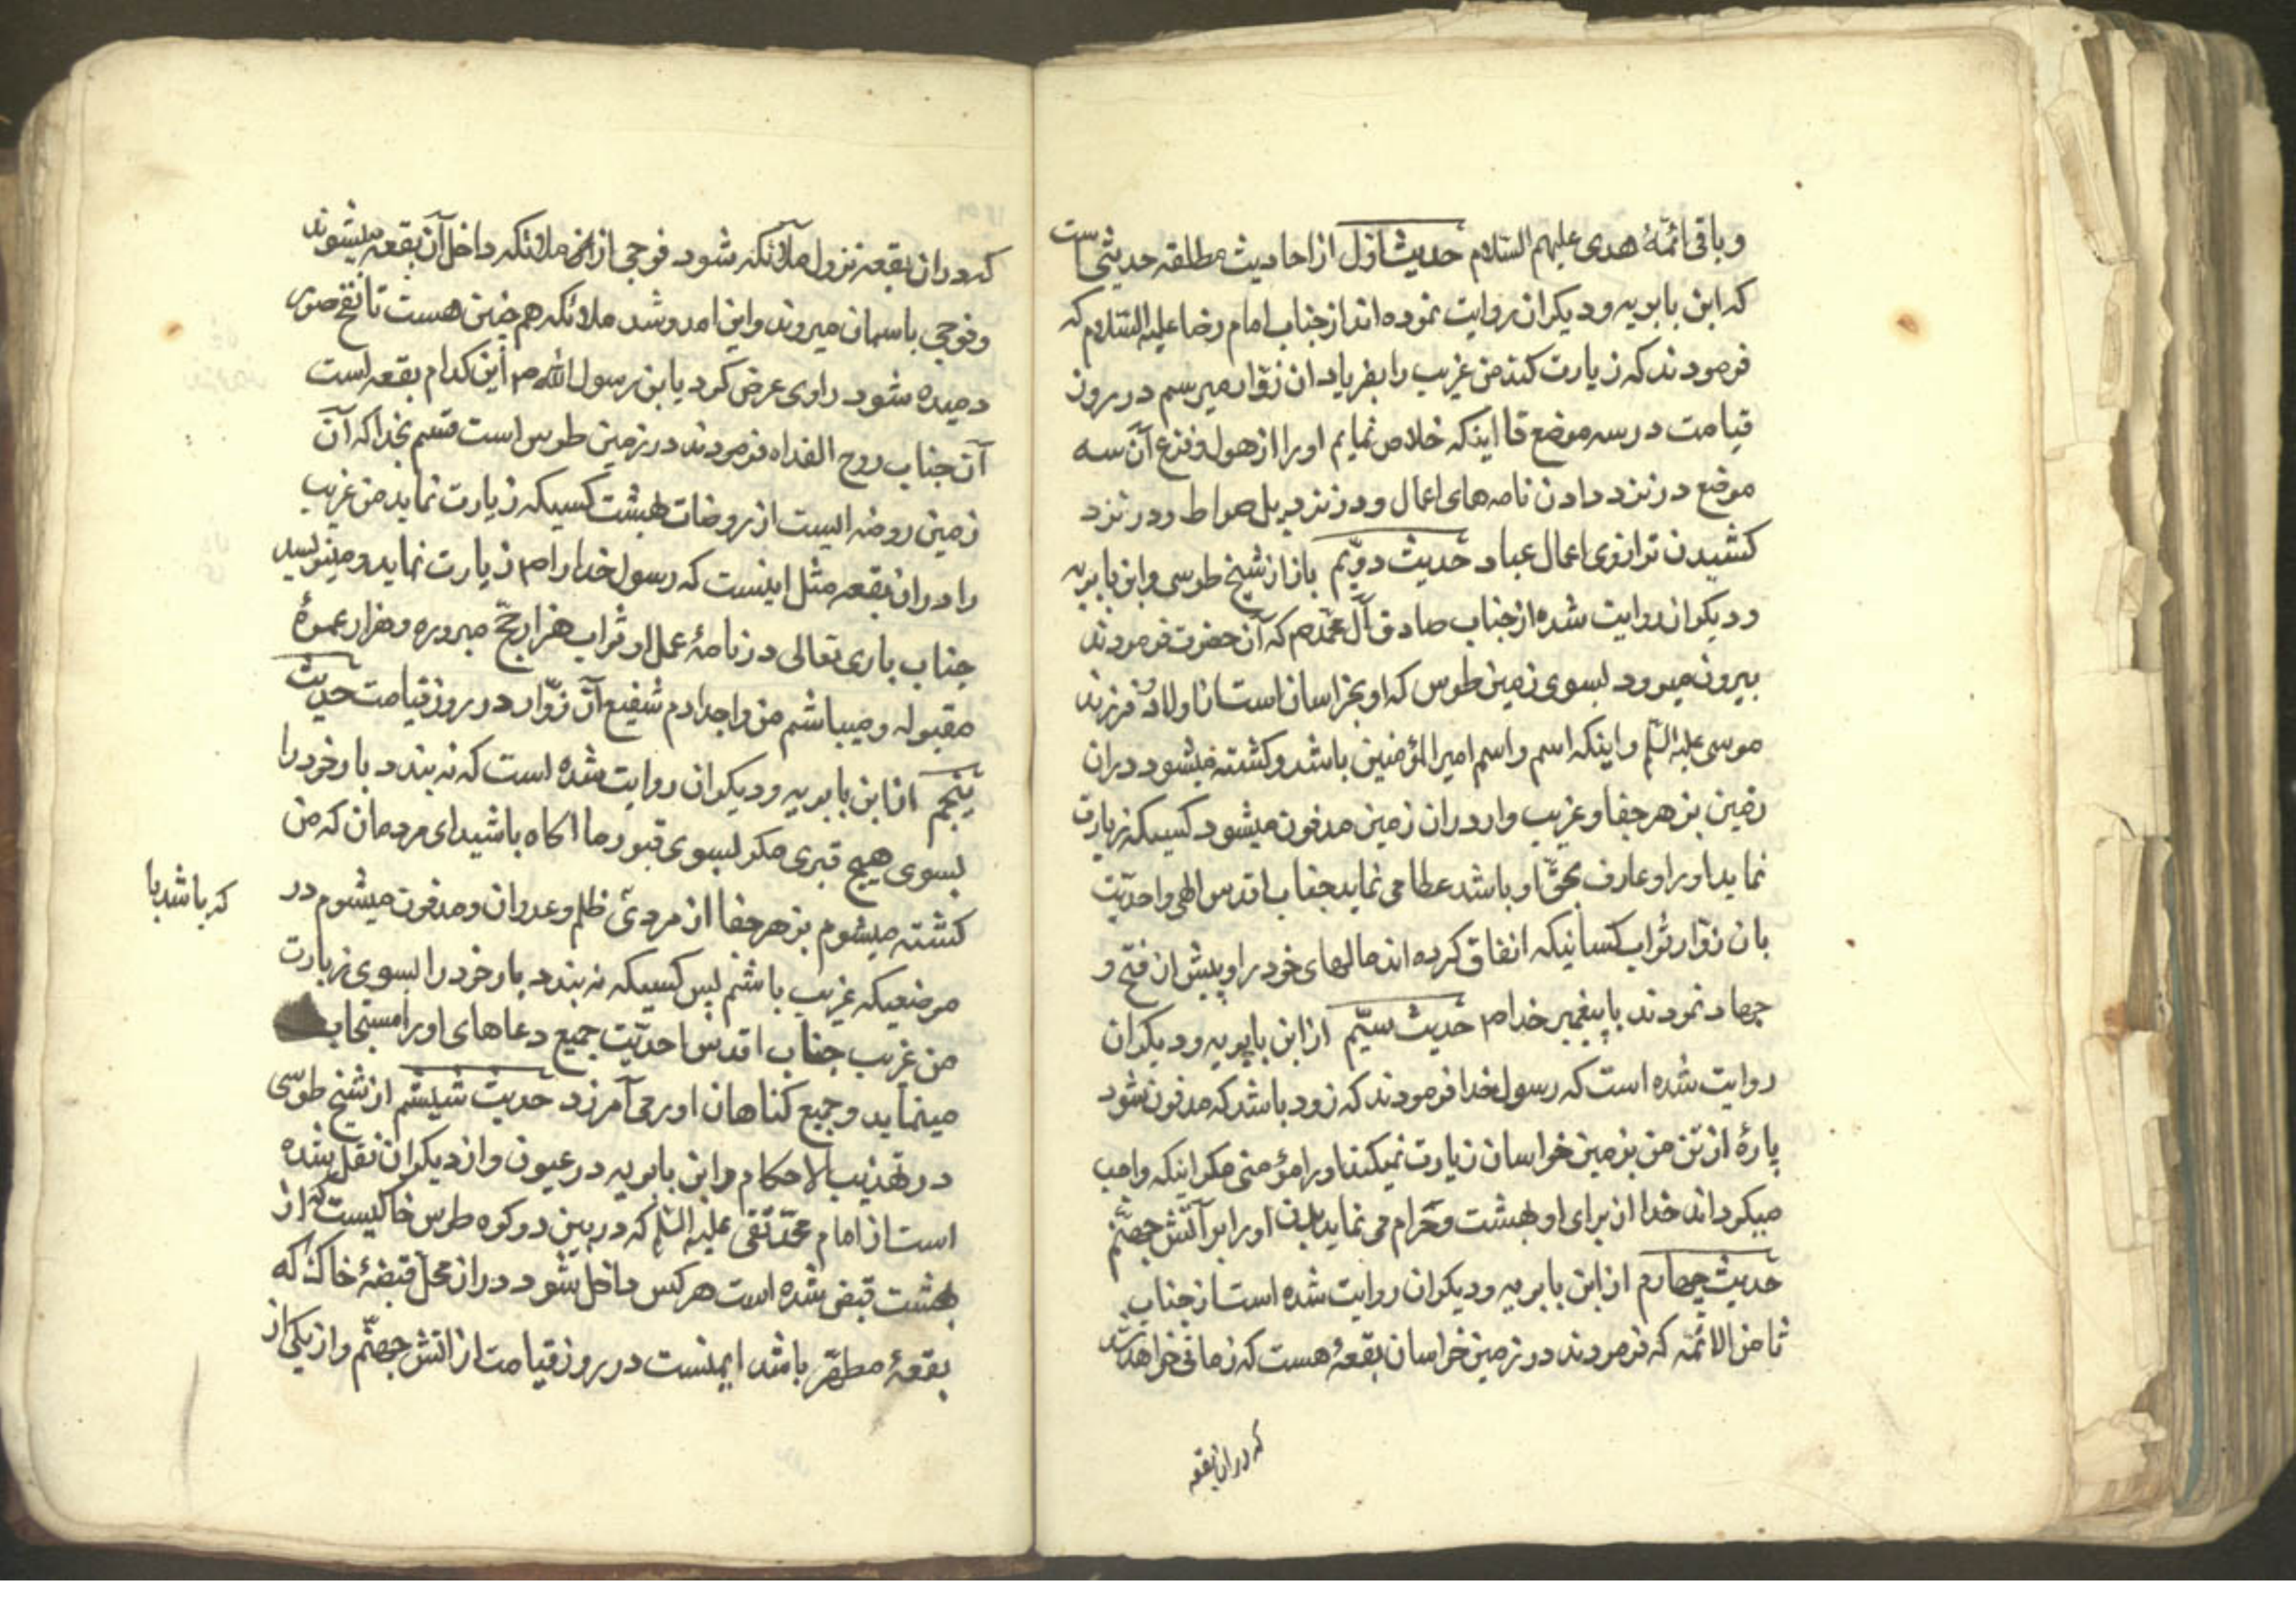 و باقی ائمّهٔ هدی علیهم السّلام حدیث اوّل از احادیث مطلقه حدیثی است
که ابن بابویه و دیکران روایت نموده اند از جناب امام رضا علیه السّلام که
فرمودند که زیارت کند من غریب را بفریاد ان زوّار میرسم در روز
قیامت در سه موضع تا اینکه خلاص نمایم او را از هول و فزع آن سه
موضع در نزد دادن نامه های اعمال و در نزد پل صراط و در نزد
کشیدن ترازوی اعمال عباد حدیث دویّم باز از شیخ طوسی و ابن بابویه
و دیکران روایت شده از جناب صادق آل محمّد ص که آن حضرت فرمودند
بیرون میرود بسوی زمین طوس که او بخراسان است از اولاد و فرزند
موسی علیه السّلم و اینکه اسم و اسم امیر المؤمنین باشد و کشته میشود در ان
زمین بزهر جفا و غریب وار در ان زمین مدفون میشود کسیکه زیارت
نماید او را و عارف بحقّ او باشد عطا می نماید جناب اقدس الهی واحدیّت
بان زوّار ثواب کسانیکه انفاق کرده اند مالهای خود را و پیش از فتح و
جهاد نمودند با پیغمبر خدا ص حدیث سیّم از ابن بابویه و دیکران
روایت شده است که رسول خدا فرمودند که زود باشد که مدفون شود
پارهٔ از تن من بزمین خراسان زیارت نمیکند او را مؤمنی مکر اینکه واجب
میکرداند خدا از برای او بهشت و حرام می نماید بدن او را بر آتش جهنّم
حدیث چهارم از ابن بابویه و دیکران روایت شده است از جناب
ثامن الائمّه که فرمودند در زمین خراسان بقعهٔ هست که زمانی خواهد شد
که در ان بقعه
که در ان بقعه نزول ملآئکه شود فوجی از ملائکه داخل آن بقعه میشوند
و فوجی باسمان میروند و این امد و شد ملائکه هم چنین هست تا نفخ صور
دمیده شود راوی عرض کرد یابن رسول اللّه ص این کدام بقعه است
آن جناب روح الفداه فرمودند در زمین طوس است قسم بخدا که آن
زمین روضه ایست از روضات بهشت کسیکه زیارت نماید من غریب
را در ان بقعه مثل اینست که رسول خدا را ص زیارت نماید و مینویسد
جناب باری تعالی در نامهٔ عمل او ثواب هزار حجّ مبروره و هزار عمرهٔ
مقبوله و میباشم من و اجدادم شفیع آن زوّار در روز قیامت حدیث
پنجم از ابن بابویه و دیکران روایت شده است که نه بندد بار خود را
بسوی هیچ قبری مکر بسوی قبور ما اکاه باشید ای مردمان که من
کشته میشوم بزهر جفا از مردی ظلم و عدوان و مدفون میشوم در
که باشد یا
موضعیکه غریب باشم پس کسیکه نه بندد بار خود را بسوی زیارت
من غریب جناب اقدس احدیّت جمیع دعاهای او را مستجاب
مینماید و جمیع کناهان او را می آمرزد حدیث شیشم از شیخ طوسی
در تهذیب الاحکام و ابن بابویه در عیون و از دیکران نقل شده
است از امام محمّد تقی علیه السّلم که در بین دو کوه طوس خاکیست که از
بهشت قبض شده است هر کس داخل شود در ان محل قبضهٔ خاک که
بقعهٔ مطهّر باشد ایمنست در روز قیامت از اتش جهنّم و از یکی از